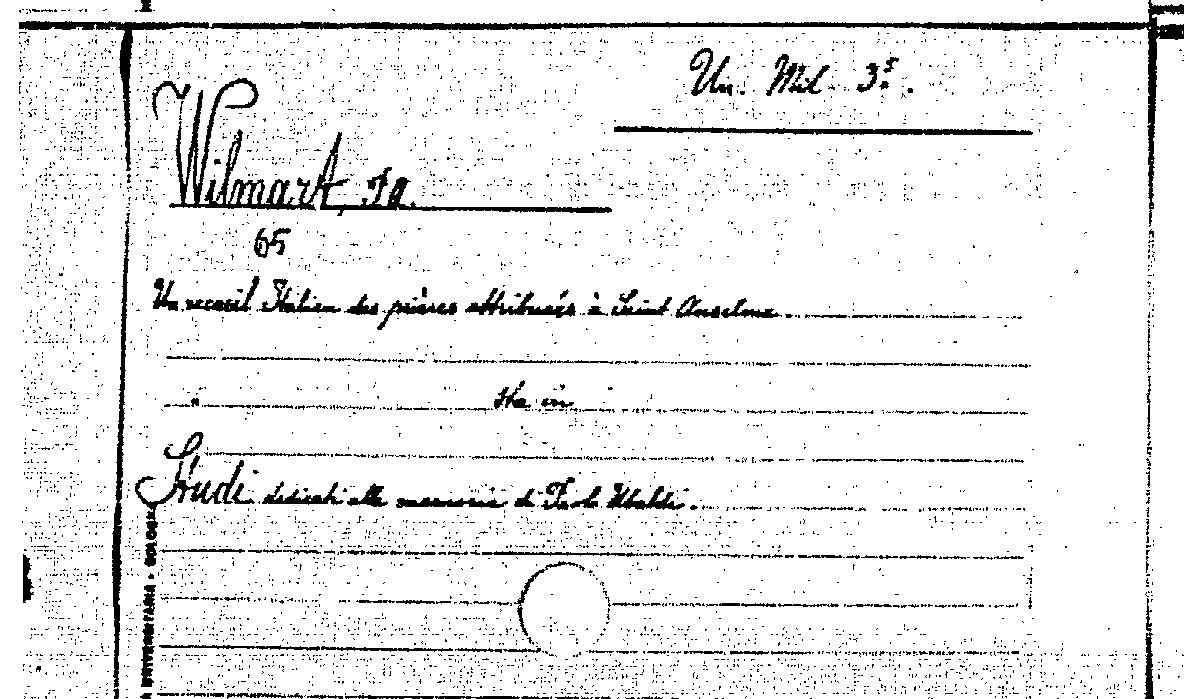 Un. Mil. 3⁵.
Wilmart,
65
Un recueil Italien des prières attribuées à Saint Anselme.
Sta in
Studi dedicati alla memoria di Paolo Ubaldi.
UNIVERSITARIA - BOLOGNA